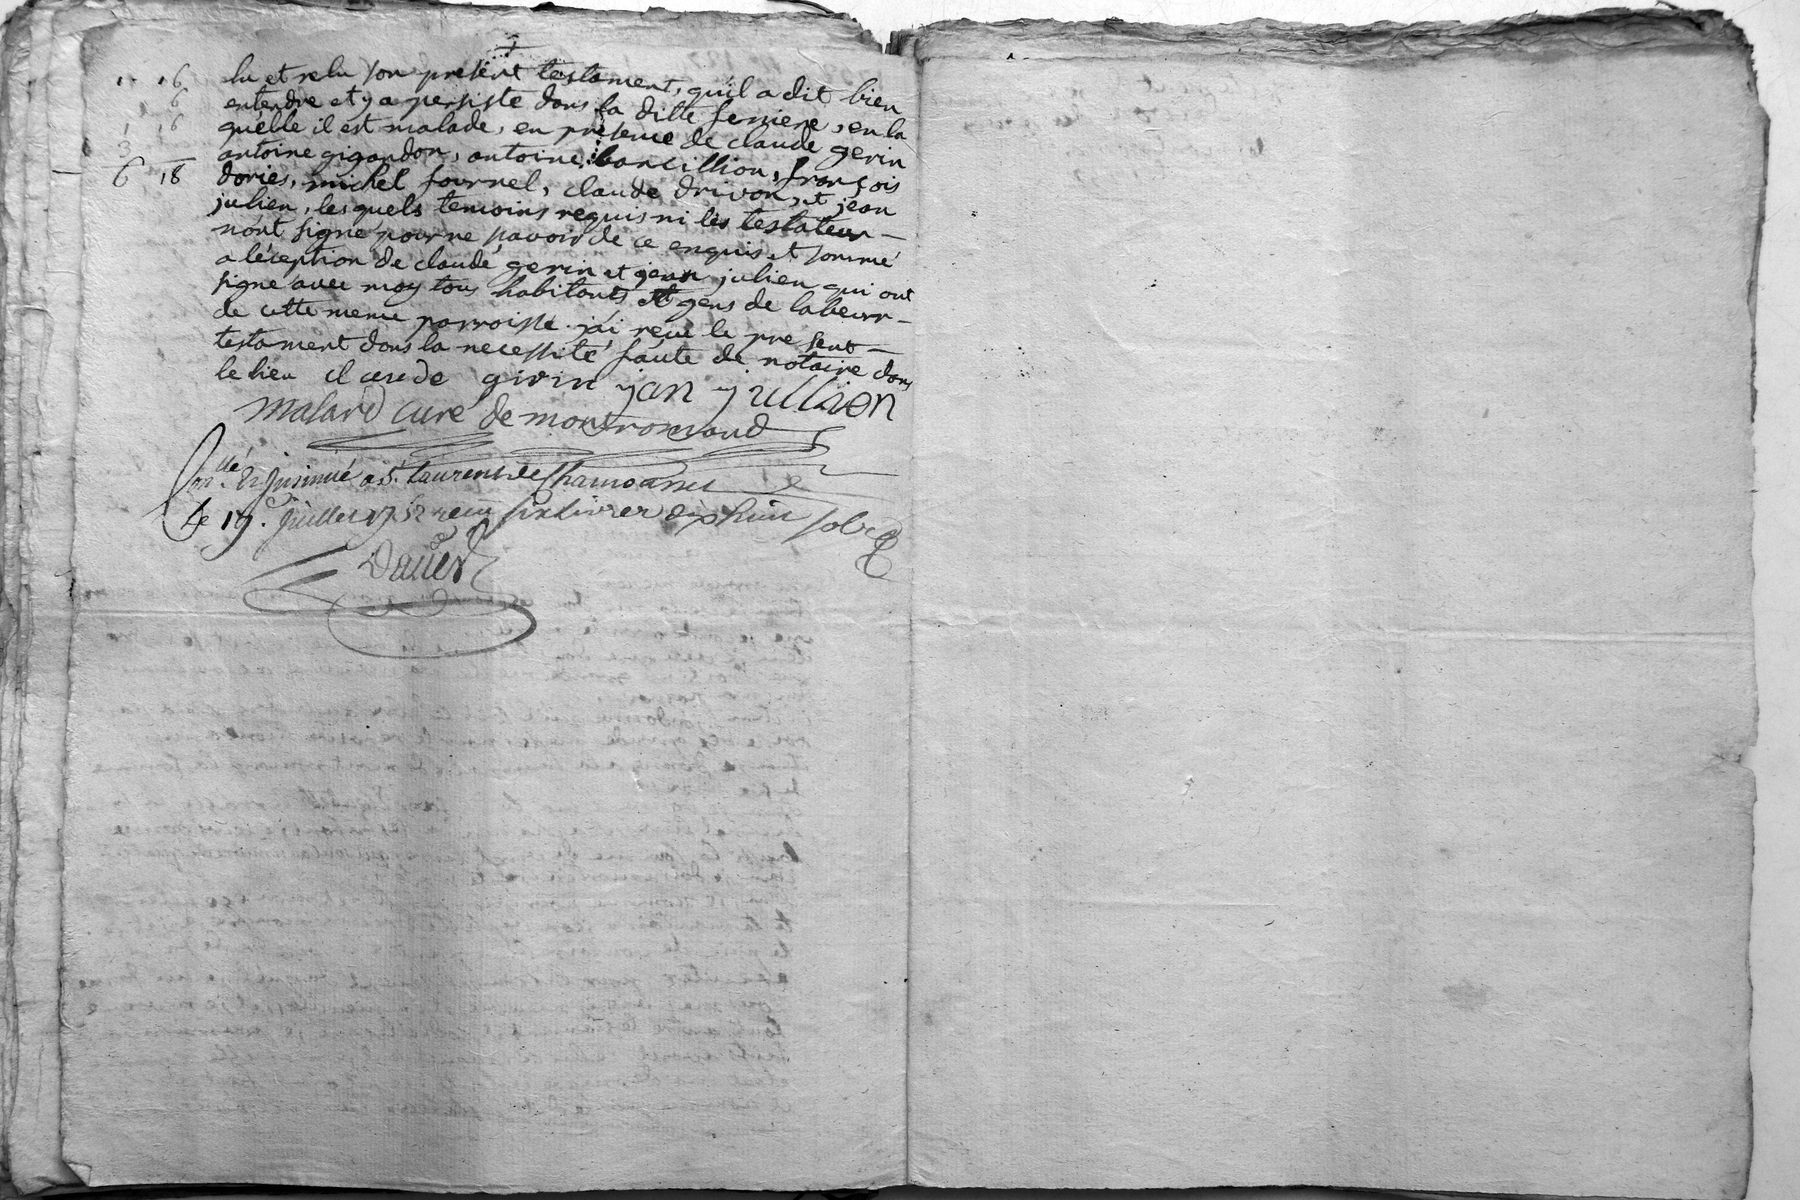 lu et relu son present testament, qu'il a dit bien
entendre et y a persiste dans sa ditte ferniere, en la
quelle il est malade, en presence de claude gerin
antoine gigandon, antoine bancillion, françois
dories, michel fournel, claude drivon, et jean
julien, lesquels temoins requis ni les testateur
n'ont signe pour ne sçavoir de ce enquis et sommé
a l'éception de claude gerin et jean julien qui ont
signé avec moy tous habitants et gens de labeurr
de cette meme parroisse. j'ai reçue le present
testament dans la necessité faute de notaire dans
le lieu claude girin jan jullien
malard curé de montromand
insinué a St. Laurent de Chamousset
Le 19e. Juillet 1752 reçu six livres dix huit sols
Daver
16
6
1 16
3
6 18